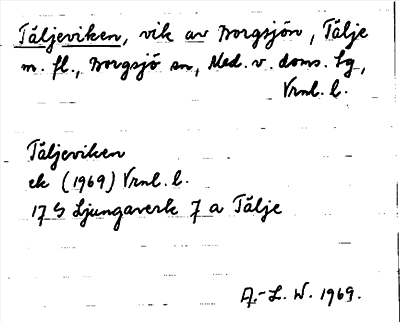 Täljeviken, vik av Borgsjön, Tälje
m. fl., Borgsjö sn, Med. v. doms. lg,
Vrnl. l.
Täljeviken
ek (1969) Vrnl. l.
17 G Ljungaverk 7 a Tälje
A.-L. W. 1969.